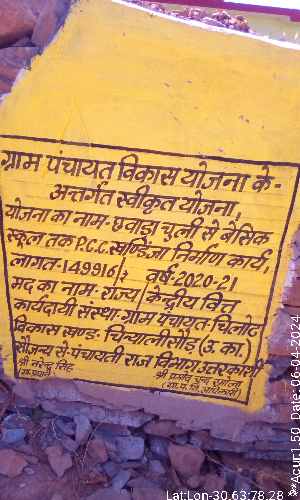 ग्राम पंचायत विकास योजना के-
अन्तर्गत स्वीकृत योजना,
योजना का नाम- छवाड़ा चुली से बेसिक
स्कूल तक P.C.C. खण्डिंजा निर्माण कार्य,
लागत-149916/: वर्ष-2020-21
मद का नाम- राज्य/केन्द्रीय वित्त
कार्यदायी संस्था- ग्राम पंचायत- चिलोट
विकास खण्ड- चिन्यालीसौड़ (उ. का.)
सौजन्य से- पंचायती राज विभाग उत्तरकाशी
श्री नरेन्द्र सिंह
(ग्रा. प्रधान)
श्री
(ग्रा. पं. वि. अधिकारी)
LatLon-30.63:78.28
**Acur:1.50 Date:06-04-2024